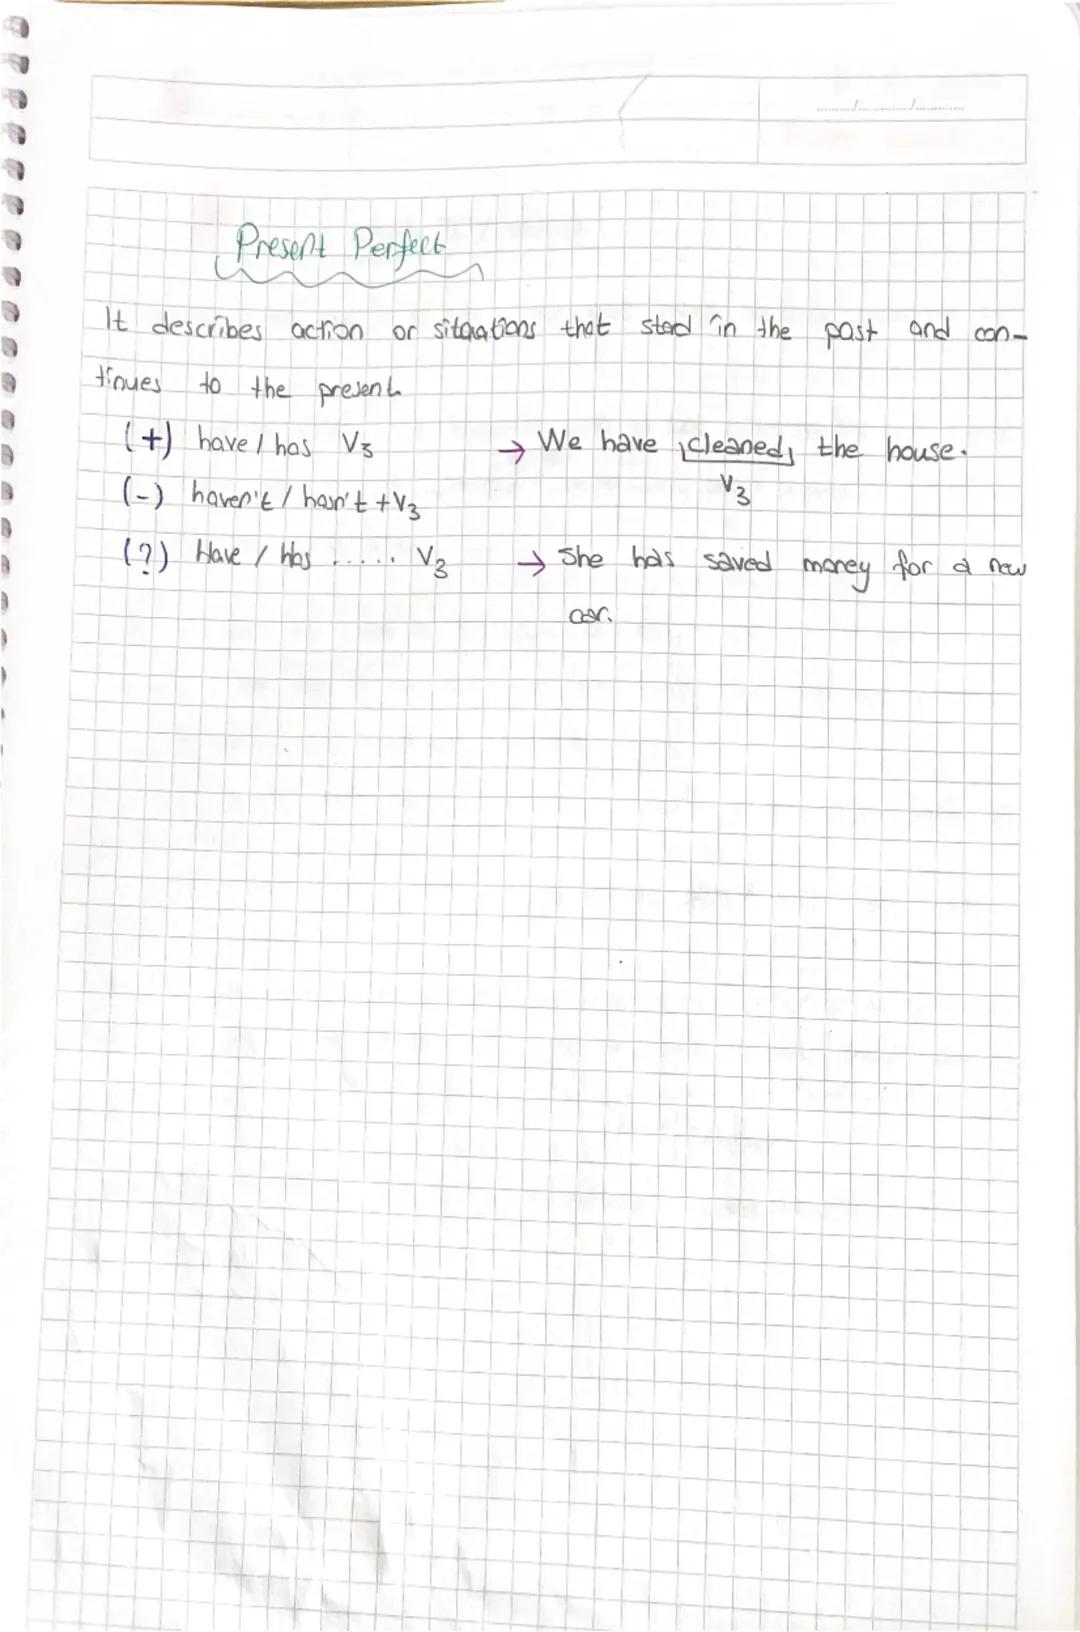 Present Perfect
It describes action or sitaations that stad in the past and con-
tinues to the present.
(+) have / has V3 → We have cleaned the house.
V3
(-) haven't / hasn't + V3
(?) Have / Has ...... V3 → She has saved money for a new
car.